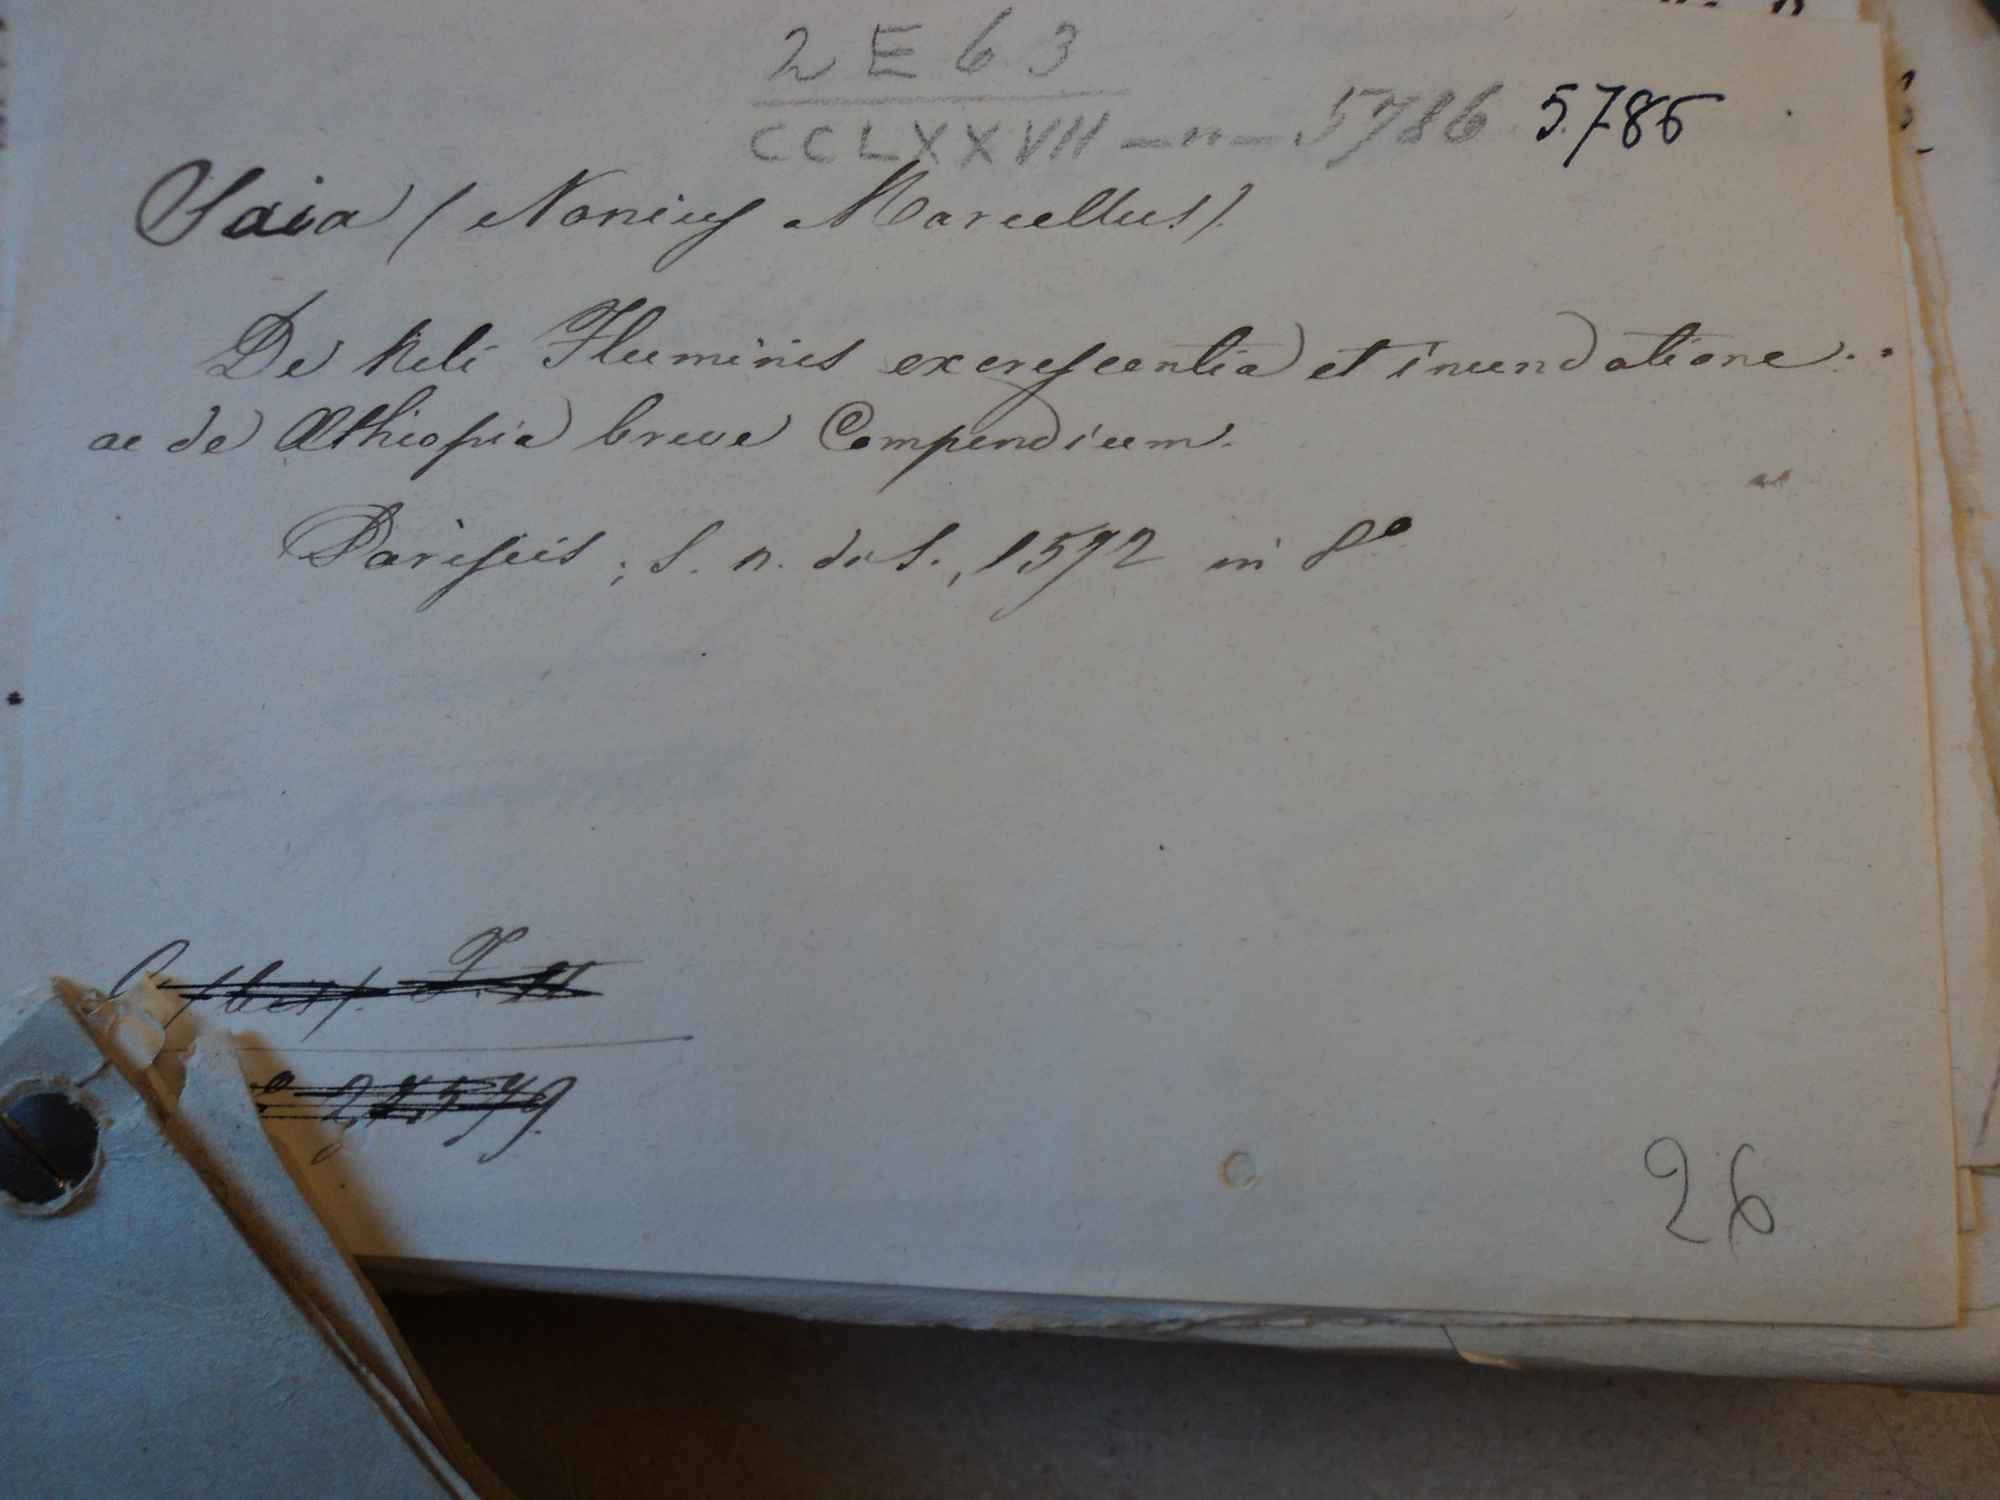 2 E 6 3
CCLXXVII — n — 5786 5786
Saia (Nonius Marcellus).
De Nili Fluminis excrescentia et inundatione..
ac de Æthiopia breve Compendium.
Parisiis; S. n. do S., 1592 in 8º
26